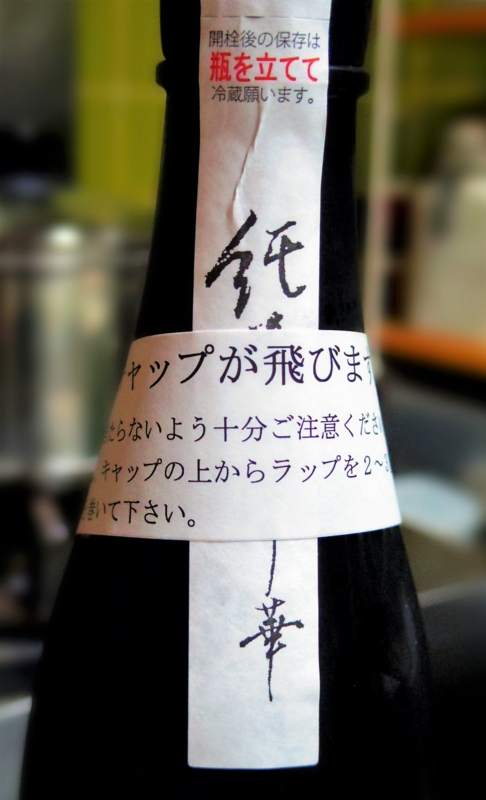 開栓後の保存は
瓶を立てて
冷蔵願います。
純
ャップが飛びます
とらないよう十分ご注意くださ
キャップの上からラップを2〜3
巻いて下さい。
華